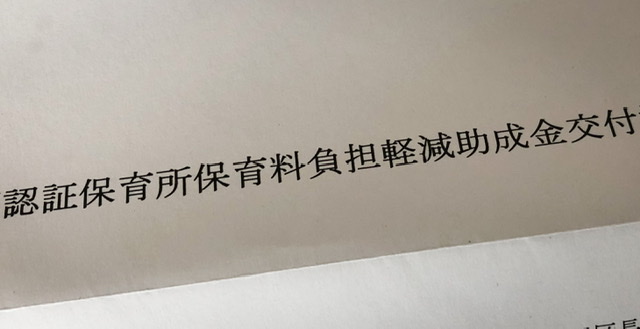 認証保育所保育料負担軽減助成金交付
区長